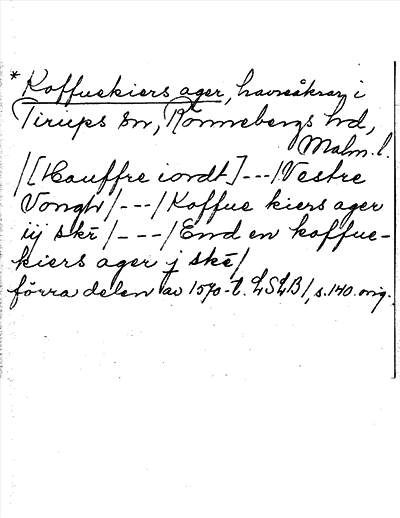 * Koffuekiers ager, havreåkrar i
Tirups sn, Rönnebergs hd,
Malm. l.
/[Hauffre iordt]---/Vestre
Vongh/---/Koffue kiers ager
iij skē/---/End en koffue-
kiers ager j skē/
förra delen av 1570-t. LSLB/, s. 140. orig.